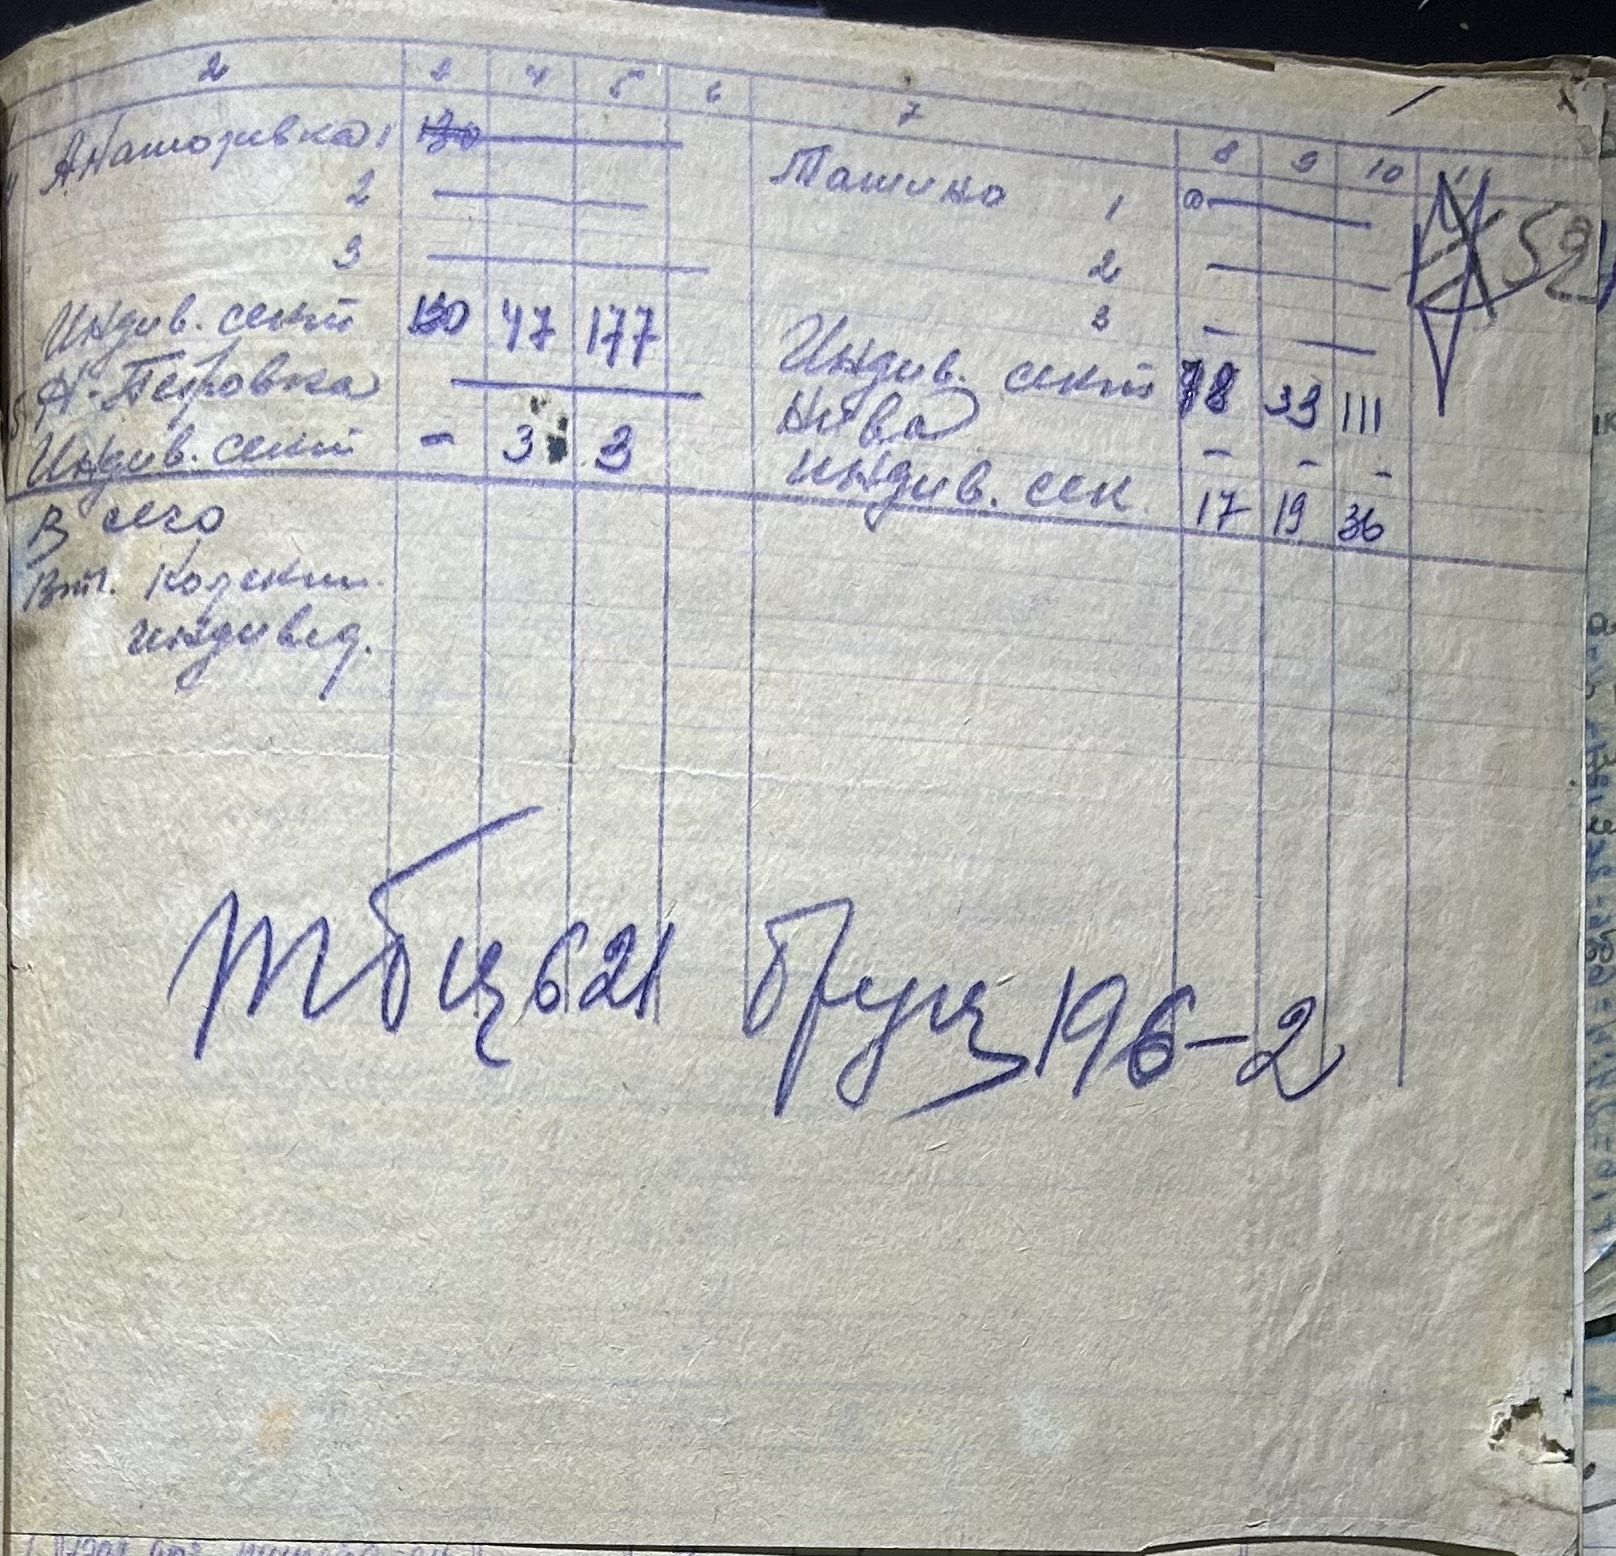 2 3 4 5 6 7 8 9 10 11
Анатолівка 1 130 Ташино 1
2 2
3 3
Индив. сект 130 47 177 Индив. сект 78 33 111
Н-Петровка Нива - - -
Индив. сект - 3 3 Индив. сек. 17 19 36
Всего
Вт.ч. Колект.
индивид.
52
621 196-2